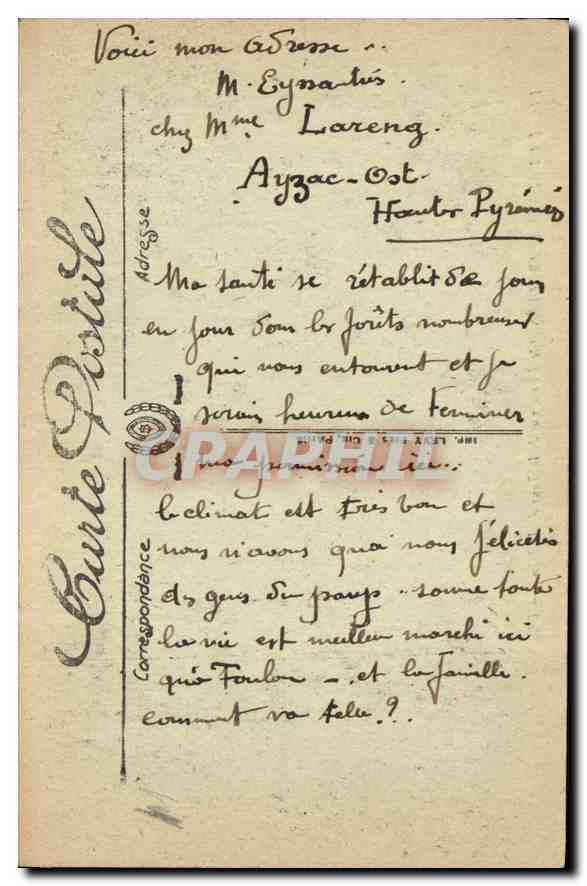 Voici mon adresse ..
M. Eyssautiés.
chez Mme Lareng.
Ayzac-Ost.
Hautes Pyrénées
Ma santé se rétablit de jour
en jour dans les forêts nombreuses
qui nous entourent et je
serais heureux de terminer
ma permission ici..
le climat est très bon et
nous n'avons qu'à nous féliciter
des gens du pays. somme toute
la vie est meilleur marché ici
qu'à Toulon -. et la famille.
comment va telle ?.
Carte Postale
Adresse
Correspondance
IMP. LEVY Fils & Cie, Paris
CARTAPHIL